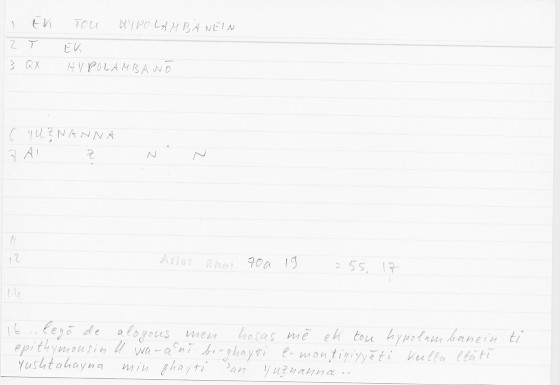 1 EK TOU HYPOLAMBANEIN
2 T EK
3 QX HYPOLAMBANŌ
6 YUẒNANNA
8 A1 Ẓ N N
11
12 Arist Rhet 70a 19 = 55, 17
14
16 ..legō de alogous men hosas mē ek tou hypolambanein ti
epithymousin // wa-aʿnī bi-ghayri l-manṭiqiyyāti kulla llātī
yushtahayna min ghayri ʾan yuẓnanna..